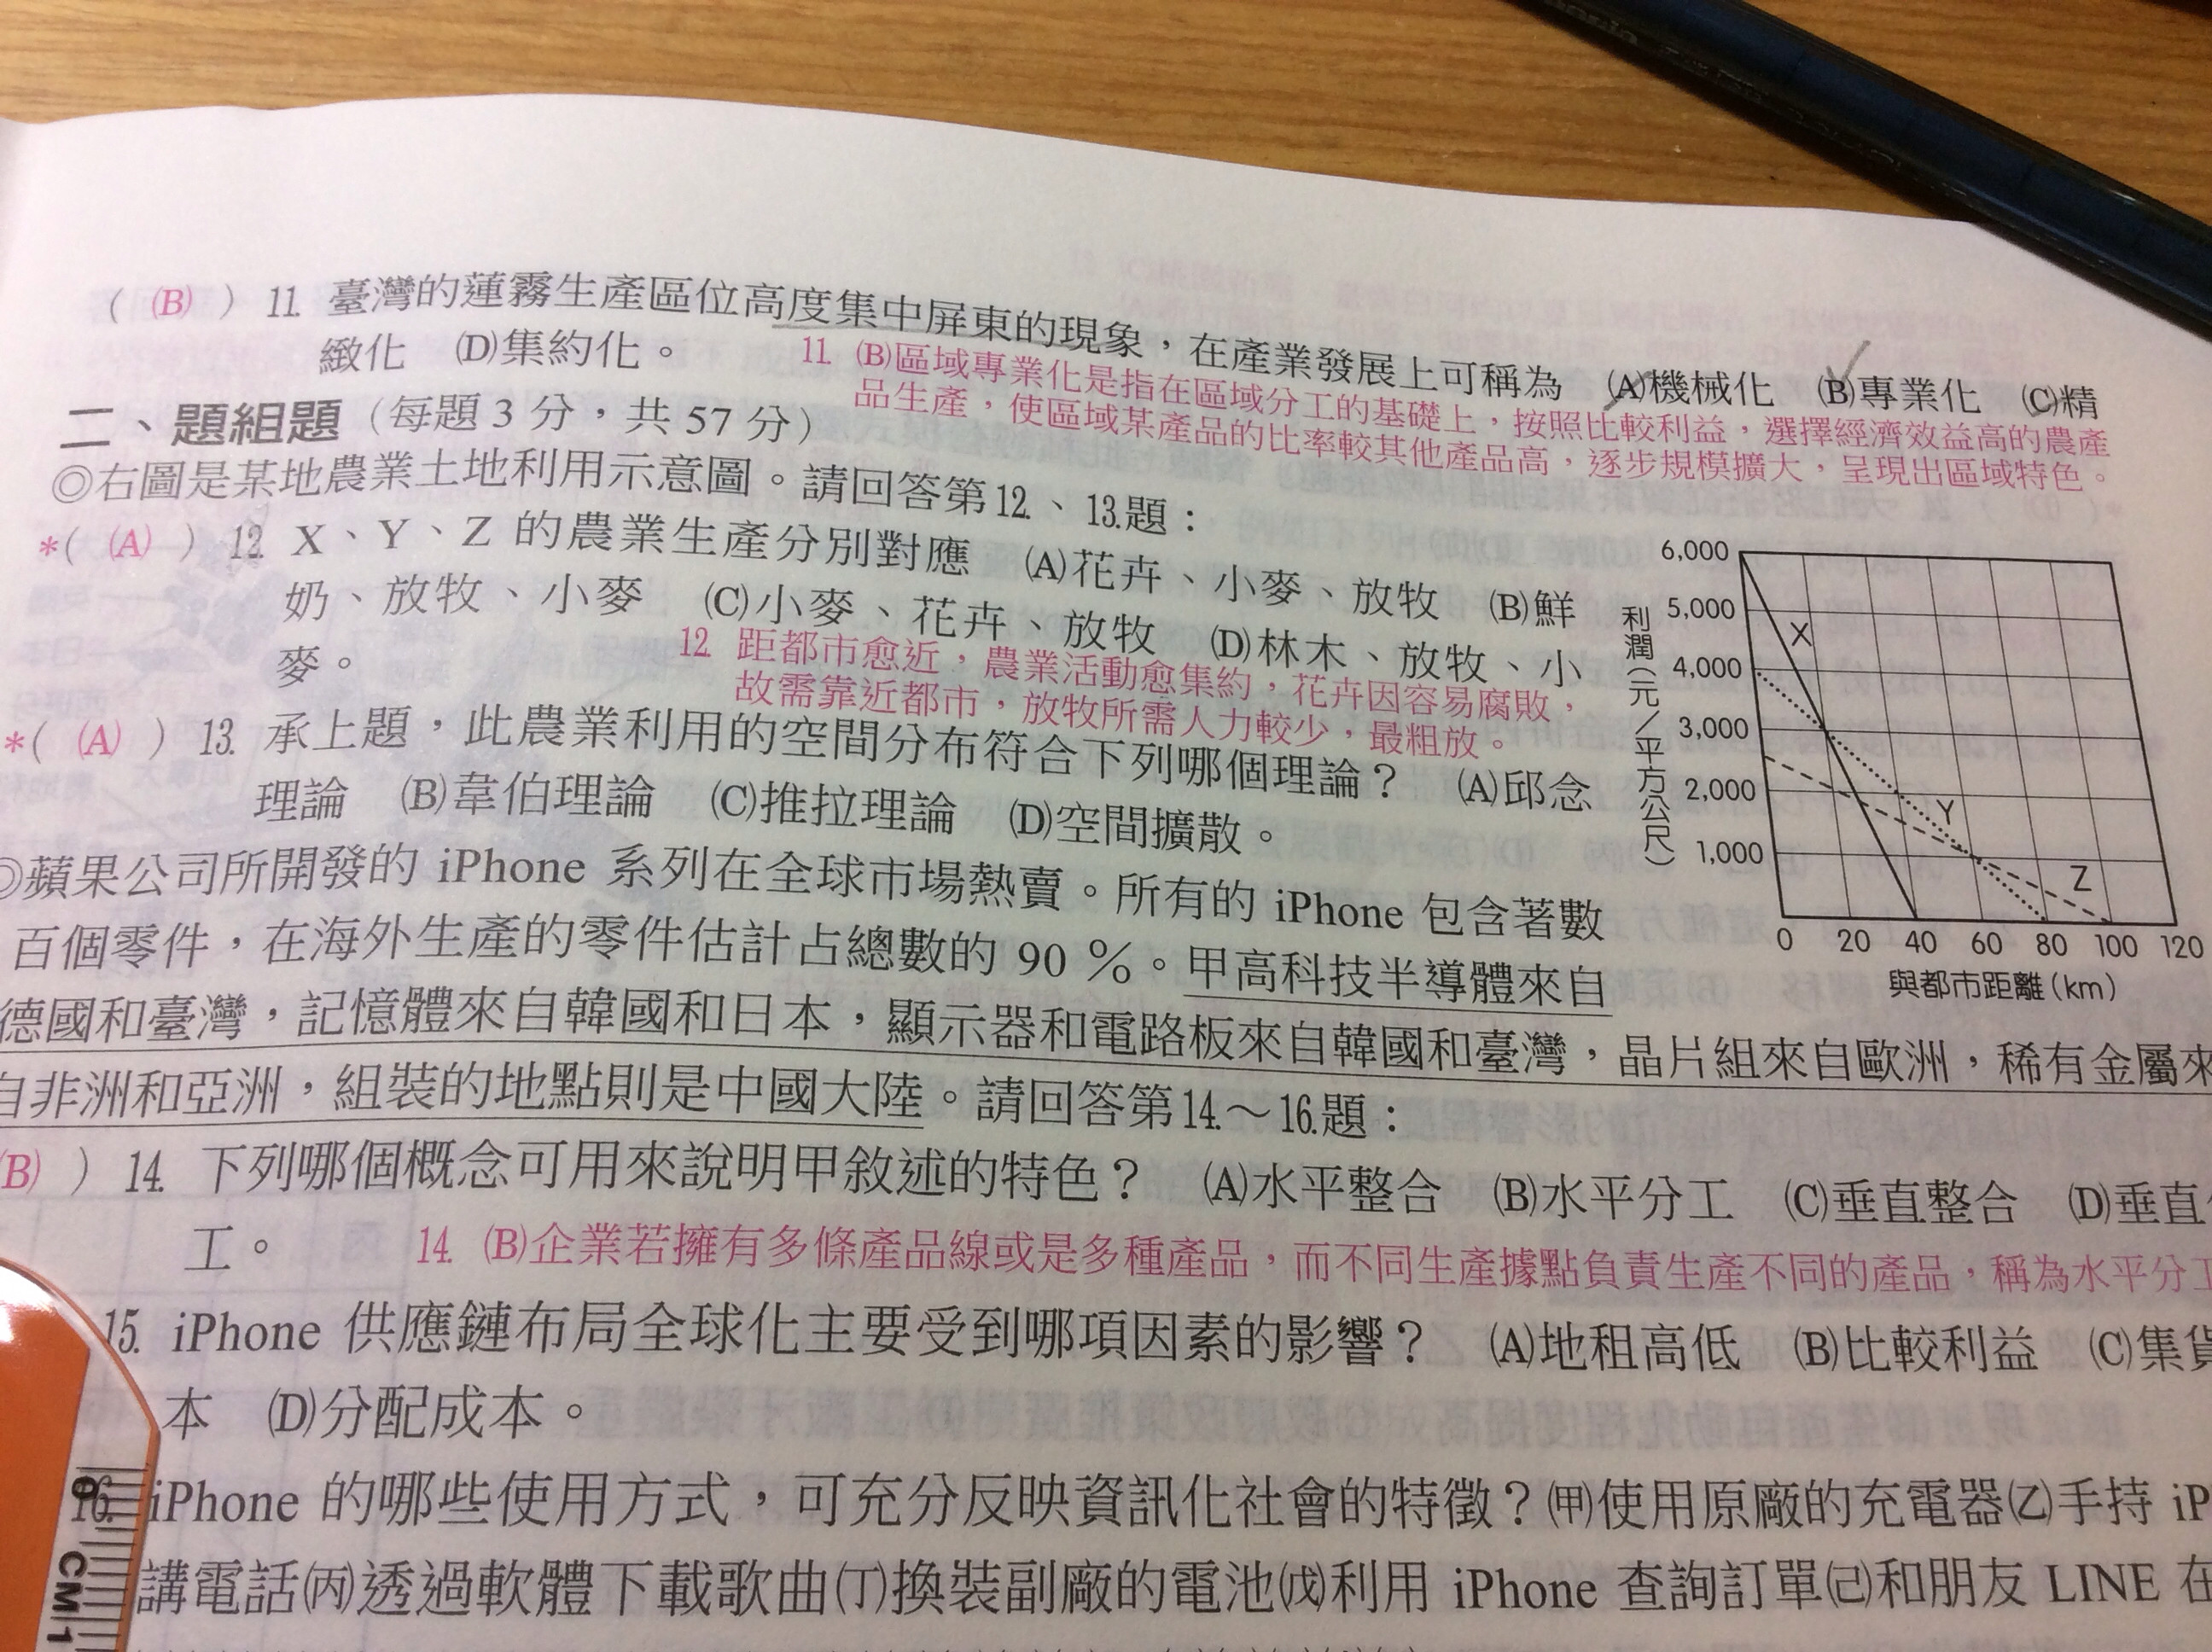 ( (B) ) 11. 臺灣的蓮霧生產區位高度集中屏東的現象，在產業發展上可稱為 (A)機械化 (B)專業化 (C)精
緻化 (D)集約化。
11. (B)區域專業化是指在區域分工的基礎上，按照比較利益，選擇經濟效益高的農產
品生產，使區域某產品的比率較其他產品高，逐步規模擴大，呈現出區域特色。
二、題組題（每題3分，共57分）
◎右圖是某地農業土地利用示意圖。請回答第12.、13.題：
*( (A) ) 12. X、Y、Z 的農業生產分別對應 (A)花卉、小麥、放牧 (B)鮮
奶、放牧、小麥 (C)小麥、花卉、放牧 (D)林木、放牧、小
麥。
12. 距都市愈近，農業活動愈集約，花卉因容易腐敗，
故需靠近都市，放牧所需人力較少，最粗放。
*( (A) ) 13. 承上題，此農業利用的空間分布符合下列哪個理論？ (A)邱念
理論 (B)韋伯理論 (C)推拉理論 (D)空間擴散。
利潤（元／平方公尺）
6,000
5,000
4,000
3,000
2,000
1,000
X
Y
Z
0 20 40 60 80 100 120
與都市距離(km)
◎蘋果公司所開發的 iPhone 系列在全球市場熱賣。所有的 iPhone 包含著數
百個零件，在海外生產的零件估計占總數的 90 %。甲高科技半導體來自
德國和臺灣，記憶體來自韓國和日本，顯示器和電路板來自韓國和臺灣，晶片組來自歐洲，稀有金屬來
自非洲和亞洲，組裝的地點則是中國大陸。請回答第14.～16.題：
(B) ) 14. 下列哪個概念可用來說明甲敘述的特色？ (A)水平整合 (B)水平分工 (C)垂直整合 (D)垂直分
工。
14. (B)企業若擁有多條產品線或是多種產品，而不同生產據點負責生產不同的產品，稱為水平分工
15. iPhone 供應鏈布局全球化主要受到哪項因素的影響？ (A)地租高低 (B)比較利益 (C)集貨
本 (D)分配成本。
16. iPhone 的哪些使用方式，可充分反映資訊化社會的特徵？(甲)使用原廠的充電器(乙)手持 iP
講電話(丙)透過軟體下載歌曲(丁)換裝副廠的電池(戊)利用 iPhone 查詢訂單(己)和朋友 LINE 在
0 CM 1